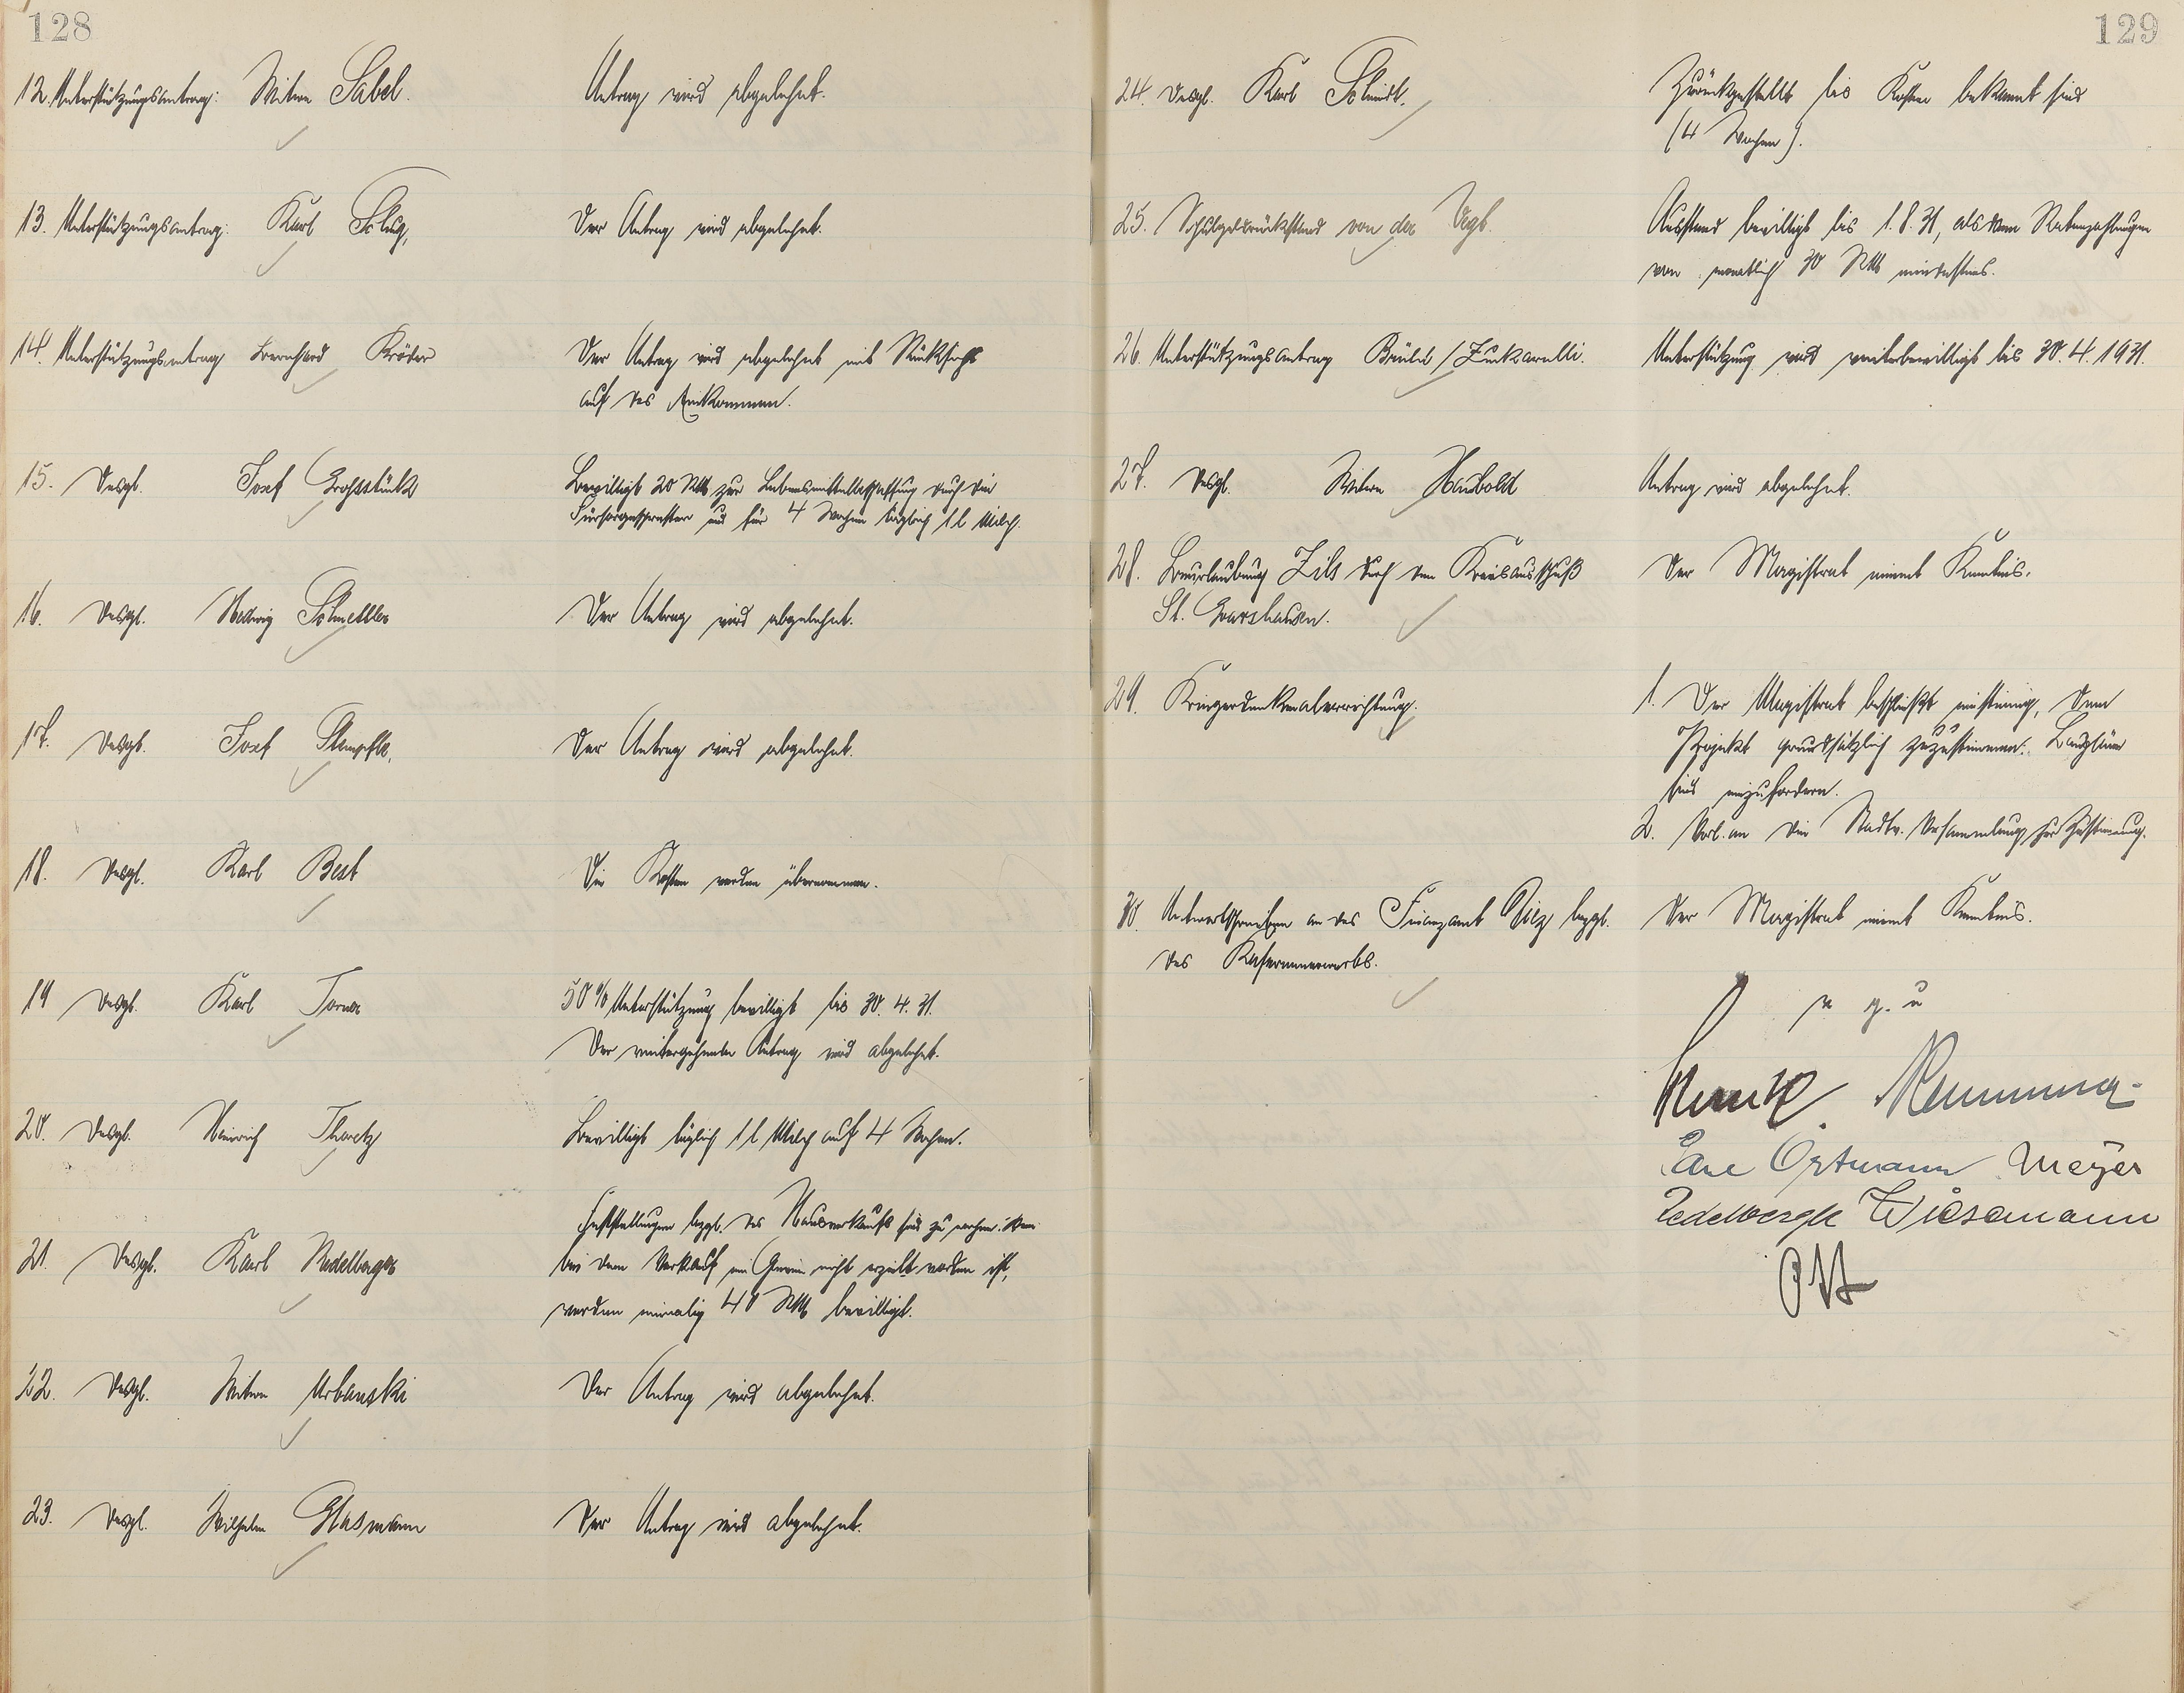 128
12. Unterstützungsantrag: Witwe Sabel.
Antrag wird abgelehnt.
13. Unterstützungsantrag: Karl Schug,
Der Antrag wird abgelehnt.
14. Unterstützungsantrag Bernhard Kröder
Der Antrag wird abgelehnt mit Rücksicht
auf das Einkommen.
15. Desgl. Josef Grohsstück
Bewilligt 20 RM zur Lebensmittelbeschaffung durch die
Fürsorgeschwester und für 4 Wochen täglich 1 l Milch.
16. Desgl. Hedwig Schmettler
Der Antrag wird abgelehnt.
17. Desgl. Josef Stempfle.
Der Antrag wird abgelehnt.
18. Desgl. Karl Best
Die Kosten werden übernommen.
19 Desgl. Karl Torner
50% Unterstützung bewilligt bis 30. 4. 31.
Der weitergehende Antrag wird abgelehnt.
20. Desgl. Heinrich Thoretz
Bewilligt täglich 1 l Milch auf 4 Wochen.
21. Desgl. Karl Nedelberger
Feststellungen bezgl. des Hausverkaufs sind zu machen. Wenn
bei dem Verkauf ein Gewinn nicht erzielt worden ist,
werden einmalig 40 RM bewilligt.
22. Desgl. Witwe Urbanski
Der Antrag wird abgelehnt.
23. Desgl. Wilhelm Glasmann
Der Antrag wird abgelehnt.
129
24. Desgl. Karl Schmidt.
Zurückgestellt bis Kosten bekannt sind
(4 Wochen).
25. Schulgeldrückstand von der Vegt.
Ausstand bewilligt bis 1. 8. 31, alsdann Ratenzahlungen
von monatlich 30 RM mindestens.
26. Unterstützungsantrag Brühl / Zuckarelli.
Unterstützung wird weiterbewilligt bis 30. 4. 1931.
27. Desgl. Witwe Haubold
Antrag wird abgelehnt.
28. Beurlaubung Zils durch den Kreisausschuß
St. Goarshausen.
Der Magistrat nimmt Kenntnis.
29. Kriegerdenkmalerrichtung.
1. Der Magistrat beschließt einstimmig, dem
Projekt grundsätzlich zuzustimmen. Baupläne
sind einzufordern.
2. Vorl. an die Stadtv. Versammlung zur Zustimmung.
30. Antwortschreiben an das Finanzamt Diez bezgl.
des Kasernenerwerbs.
Der Magistrat nimmt Kenntnis.
v. g. u
Ortmann Meyer
Wiesemann
Ott